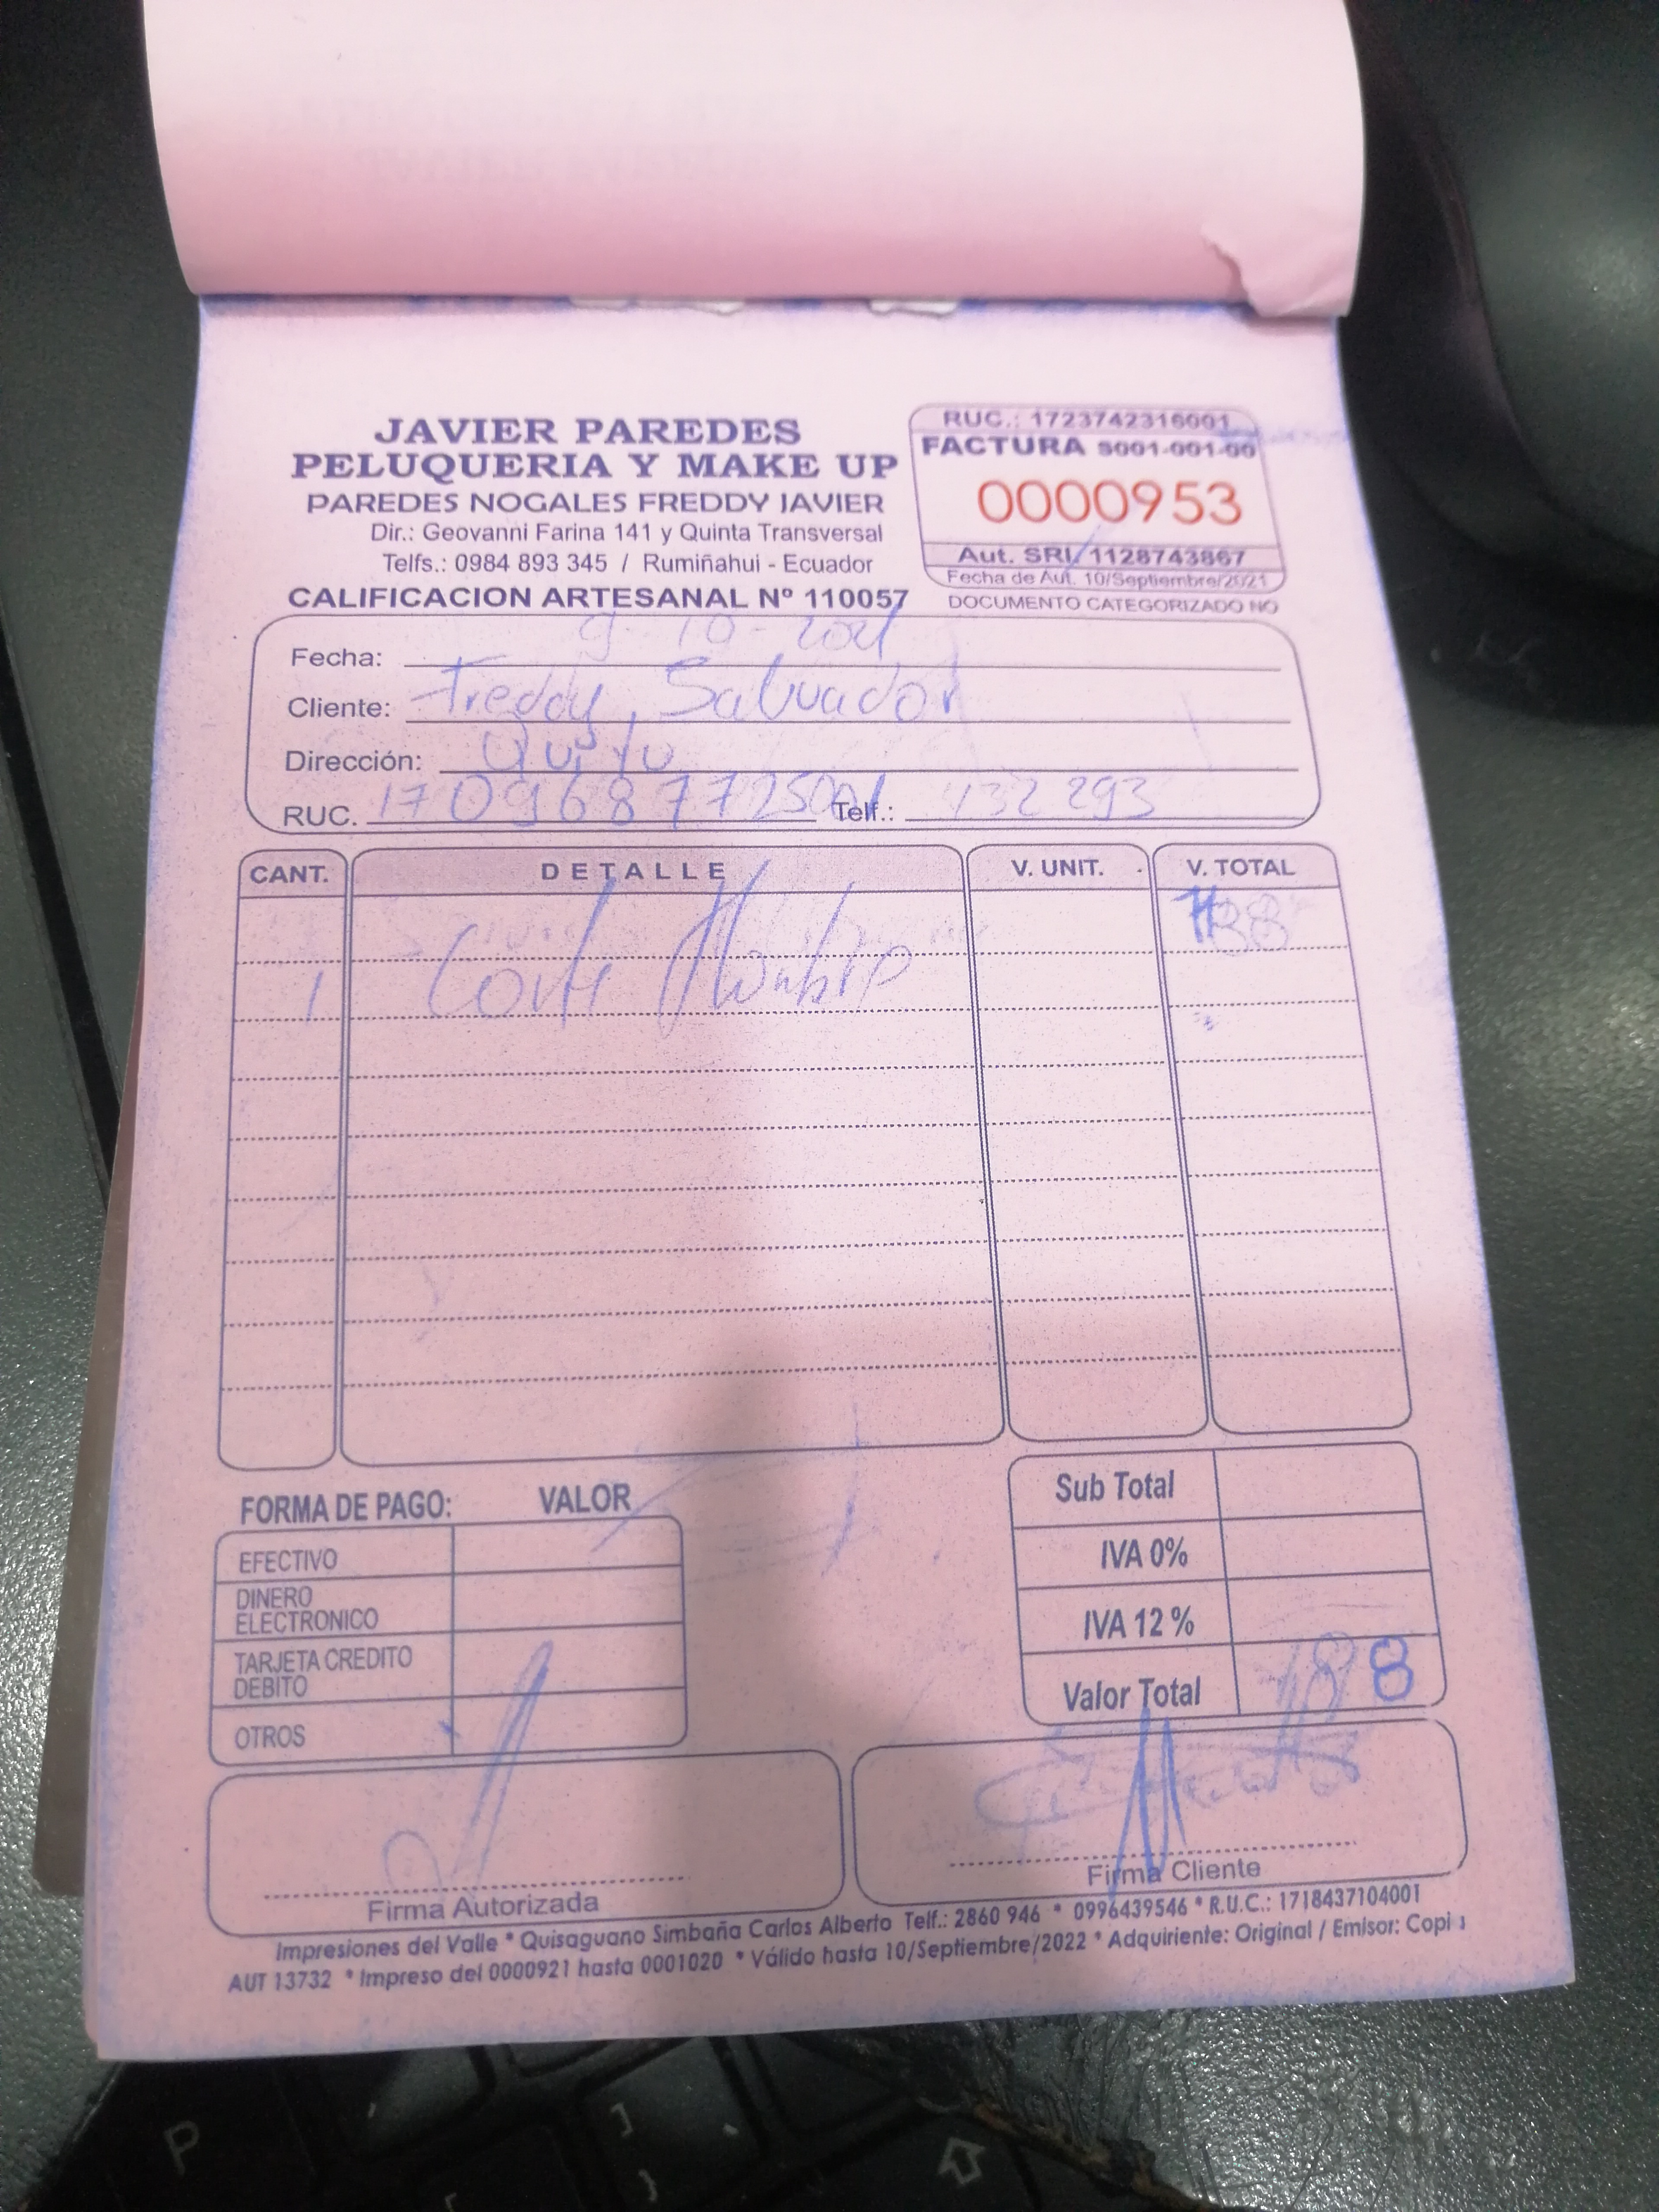 JAVIER PAREDES
PELUQUERIA Y MAKE UP
PAREDES NOGALES FREDDY JAVIER
Dir.: Geovanni Farina 141 y Quinta Transversal
Telfs.: 0984 893 345 / Rumiñahui - Ecuador
CALIFICACION ARTESANAL Nº 110057
RUC.: 1723742316001
FACTURA S001-001-00
0000953
Aut. SRI. 1128743867
Fecha de Aut. 10/Septiembre/2021
DOCUMENTO CATEGORIZADO NO
Fecha: 9-10-2021
Cliente: Freddy Salvador
Dirección: Quito
RUC. 1709687725001 Telf.: 432 293
CANT. DETALLE V. UNIT. V. TOTAL
1 Corte Hombre
FORMA DE PAGO: VALOR
EFECTIVO
DINERO ELECTRONICO
TARJETA CREDITO DEBITO
OTROS
Sub Total
IVA 0%
IVA 12 %
Valor Total 8
Firma Autorizada
Firma Cliente
Impresiones del Valle * Quisaguano Simbaña Carlos Alberto Telf.: 2860 946 * 0996439546 * R.U.C.: 1718437104001
AUT 13732 * Impreso del 0000921 hasta 0001020 * Válido hasta 10/Septiembre/2022 * Adquiriente: Original / Emisor: Copi
P